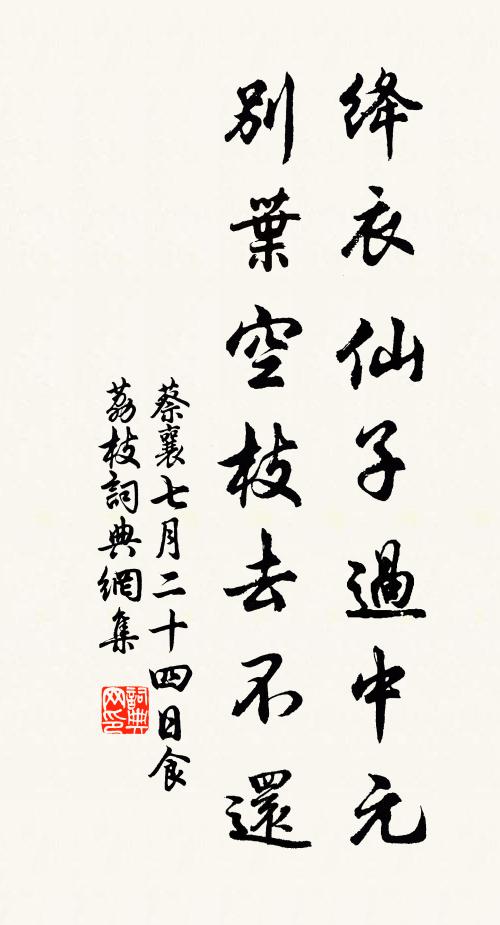 绛衣仙子過中元
别葉空枝去不還
蔡襄七月二十四日食
荔枝詞典網集
詞典网印